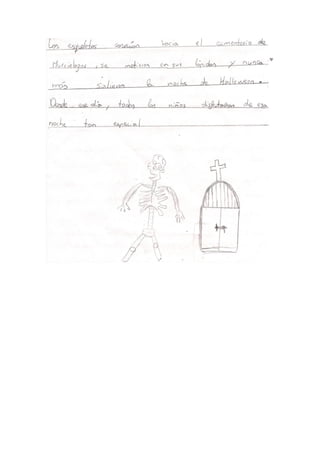 Los espíritus corrían hacia el cementerio de
Murcielagos, se metieron en sus tumbas y nunca
más salieron la noche de Halloween.
Desde ese día, todos los niños disfrutaron de esa
noche tan especial